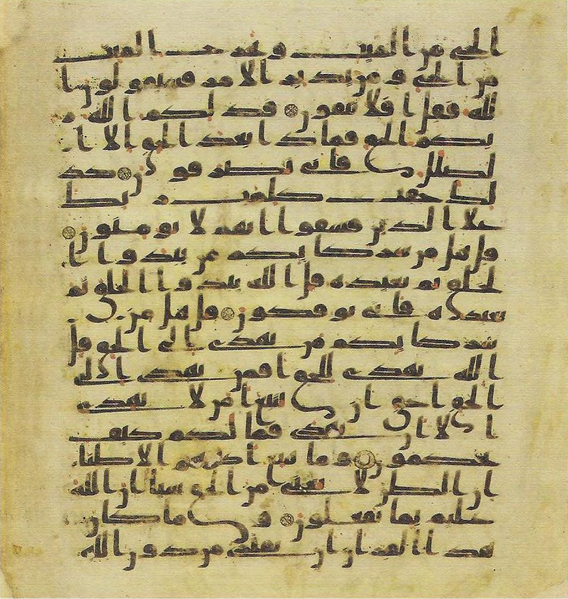 الحي من الميت ويخرج الميت
من الحي ومن يدبر الامر فسيقولون ا
لله فقل افلا تتقون فذلكم الله ر
بكم الحق فماذا بعد الحق الا ا
لضلل فانى تصرفون كذ
لك حقت كلمت ربك
على الذين فسقوا انهم لا يومنون
قل هل من شركايكم من يبدوا ا
لخلق ثم يعيده قل الله يبدوا الخلق ثم
يعيده فانى توفكون قل هل من
شركايكم من يهدي الى الحق قل
الله يهدي للحق افمن يهدي الى
الحق احق ان يتبع امن لا يهدي
الا ان يهدى فما لكم كيف
تحكمون وما يتبع اكثرهم الا ظنا
ان الظن لا يغني من الحق شيا ان الله
عليم بما يفعلون وما كان
هذا القران ان يفترى من دون الله